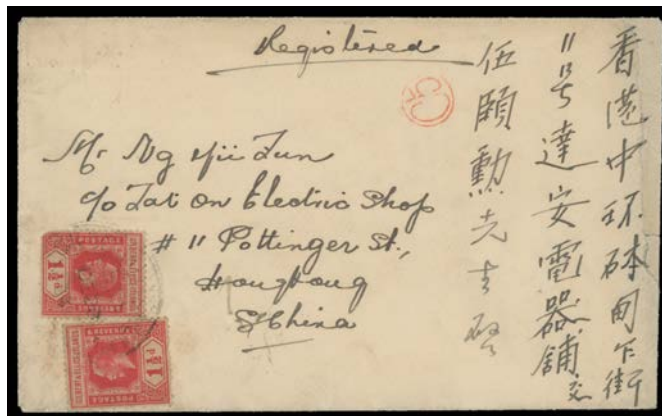 Registered
Mr Ng Yii Fun
c/o Tat On Electric Shop
# 11 Pottinger St.,
Hongkong
S China
香港中环砵甸乍街
11号達安電器舖交
伍頤勳先生啓
POSTAGE
1½d
GILBERT & ELLICE ISLANDS
POSTAGE
1½d